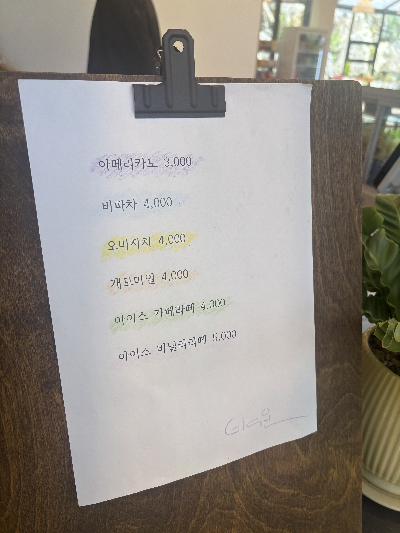 아메리카노 3,000
비파차 4,000
오미자차 4,000
개도미인 4,000
아이스 카페라떼 4,000
아이스 바닐라라떼 5,000